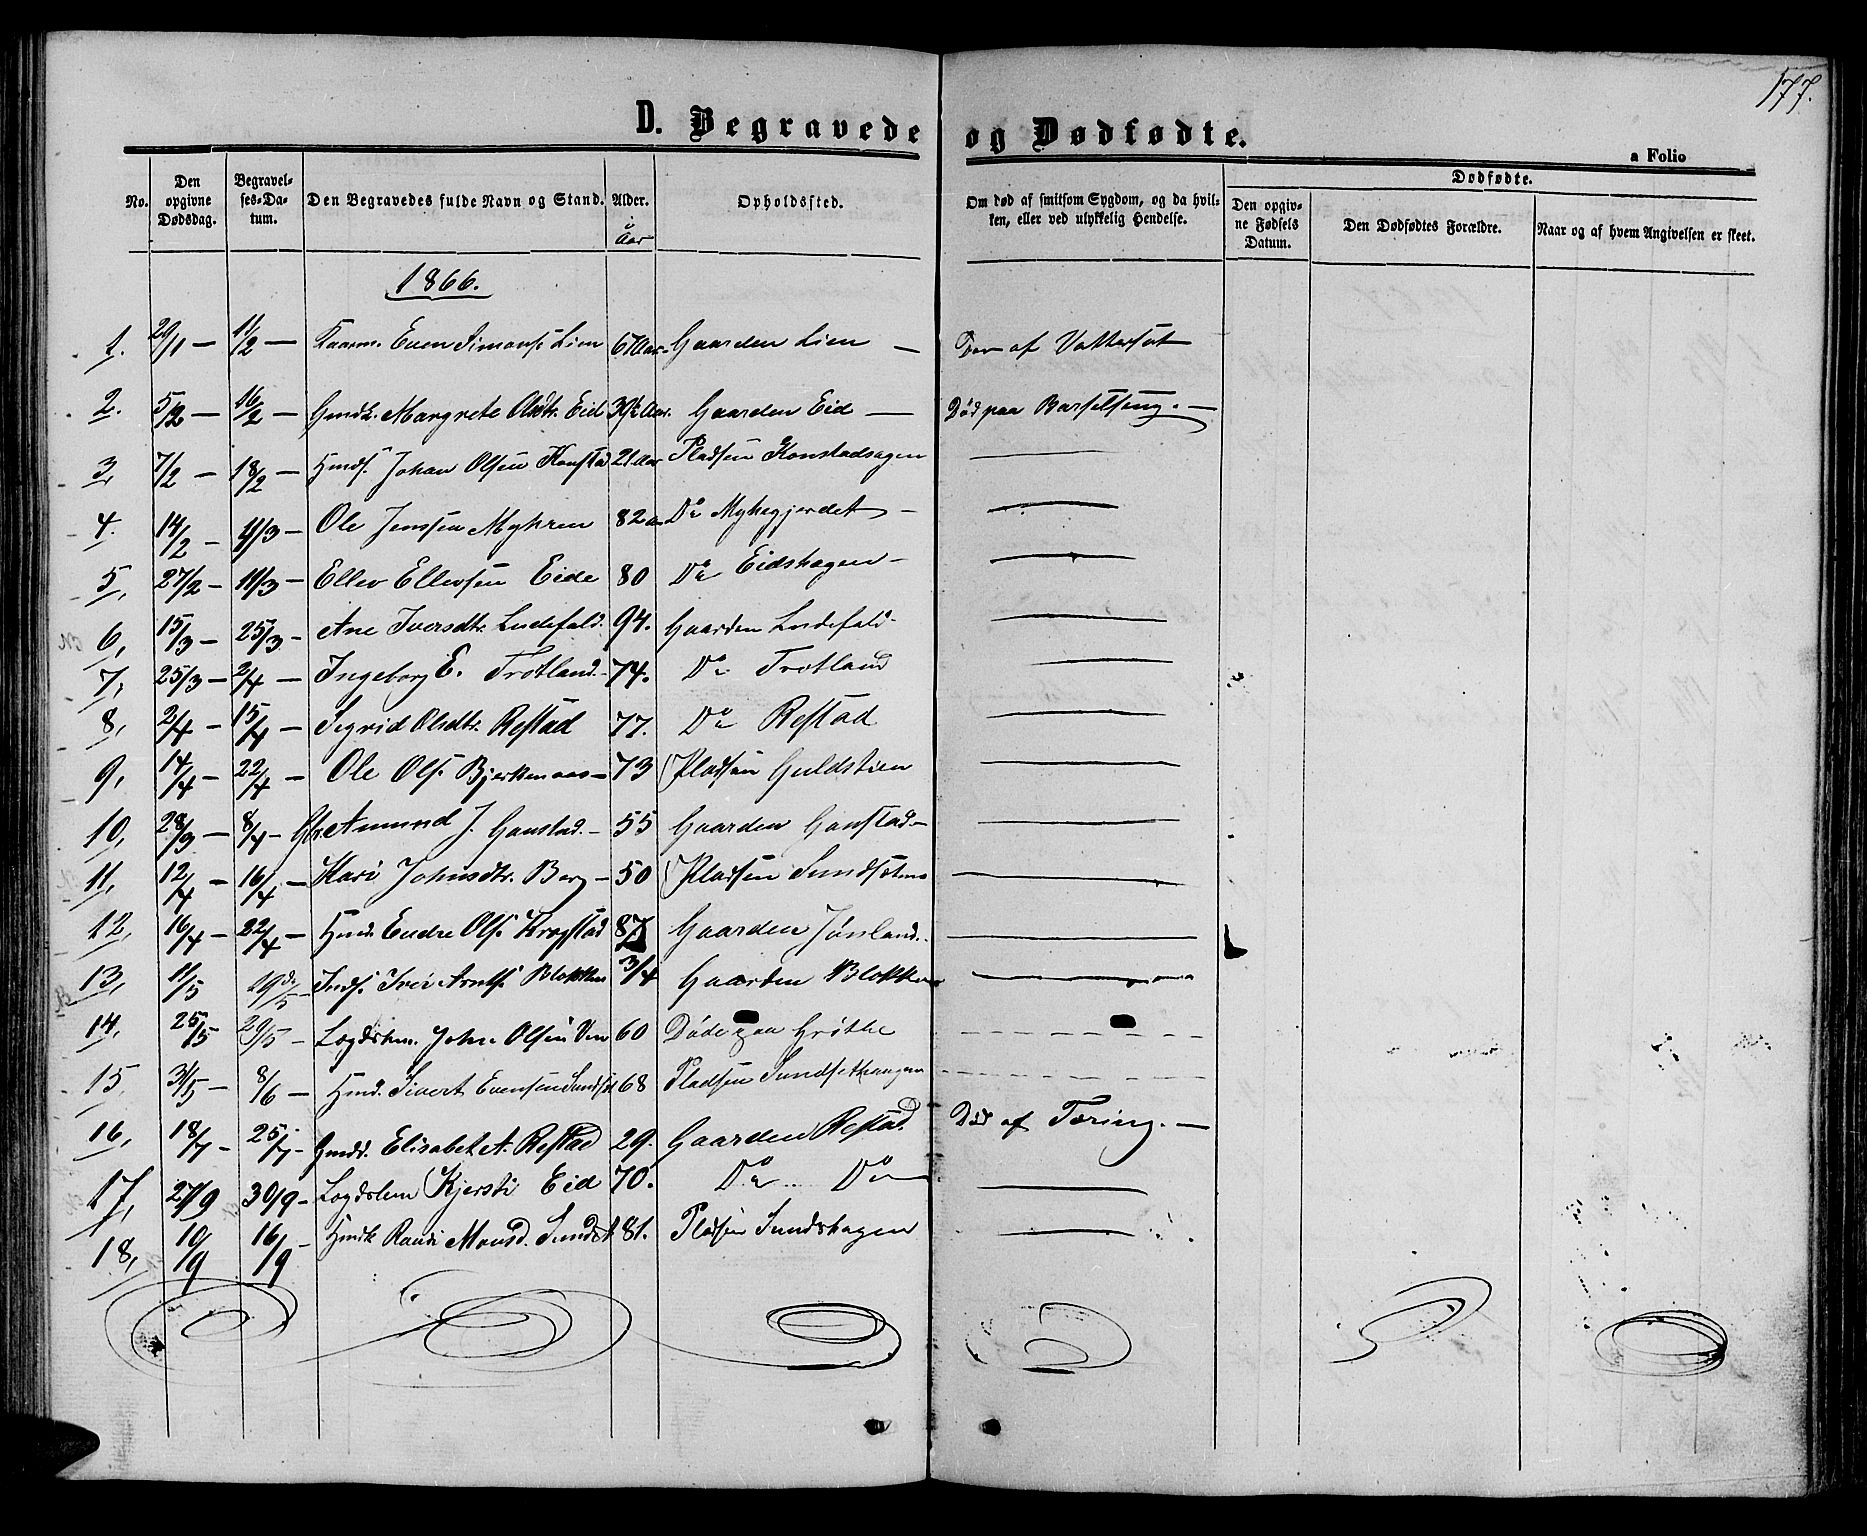 177.
D. Begravede og Dødfødte.
a Folio
No. Den opgivne Dødsdag. Begravelses-Datum. Den Begravedes fulde Navn og Stand. Alder. Aar Opholdssted. Om død af smitsom Sygdom, og da hvilken, eller ved ulykkelig Hendelse. Dødfødte. Den opgivne Fødsels Datum. Den Dødfødtes Forældre. Naar og af hvem Angivelsen er skeet.
1866.
1. 29/1 — 11/2 — Even Simons. Lien 67 Aar Gaarden Lien — af Vattersot
2. 5/2 — 16/2 — Margrete Olsdtr. Eid Aar. Gaarden Eid — Død paa Barselseng. —
3, 7/2 — 18/2 — Johan Olsen 21 Aar Pladsen Konstadsagen
4. 14/2 — 11/3 — Ole Jenssen Myhren 82 Do Myhegjerdet —
5, 27/2 — 11/3 — Ellev Ellevsen Eide 80 Do Eidshagen —
6, 15/3 — 25/3 — Ane Iversdtr. Indefald. 94. Gaarden Indefald
7, 25/3 — 2/4 — Ingeborg E. Trotland. 74. Do Trotland
8, 2/4 — 15/4 — Sigrid Olsdtr. Restad 77. Do Restad
9, 14/4 — 22/4 — Ole Ols. Bjerkenaas — 73 Pladsen Guldstien
10, 28/3 — 8/4 — Amund J. Gaustad. — 55 Gaarden Gaustad —
11, 12/4 — 16/4 — Kari Johnsdtr. Berg — 50 Pladsen
12, 16/4 — 22/4 — Endre Ols. Krogstad 87 Gaarden Jønland.
13, 11/5 29de/5 — Inds. Iver Arnts. Blokken 3/4 Gaarden Blokken
14. 25/5 29/5 — Lægdslem. John Olsen 60 Døde paa Grøthe
15 31/5 — 8/6 — Sivert Evensen 68 Pladsen Sundsethaugen
16, 18/7 — 25/7 — Elisabet A. Restad 29. Gaarden Restad. Død af Tæring. —
17, 27/9 30/9 — Lægdslem Kjersti Eid 70. Do Do —
18, 10/9 16/9 — Randi Monsd. 81. Pladsen Sundshagen